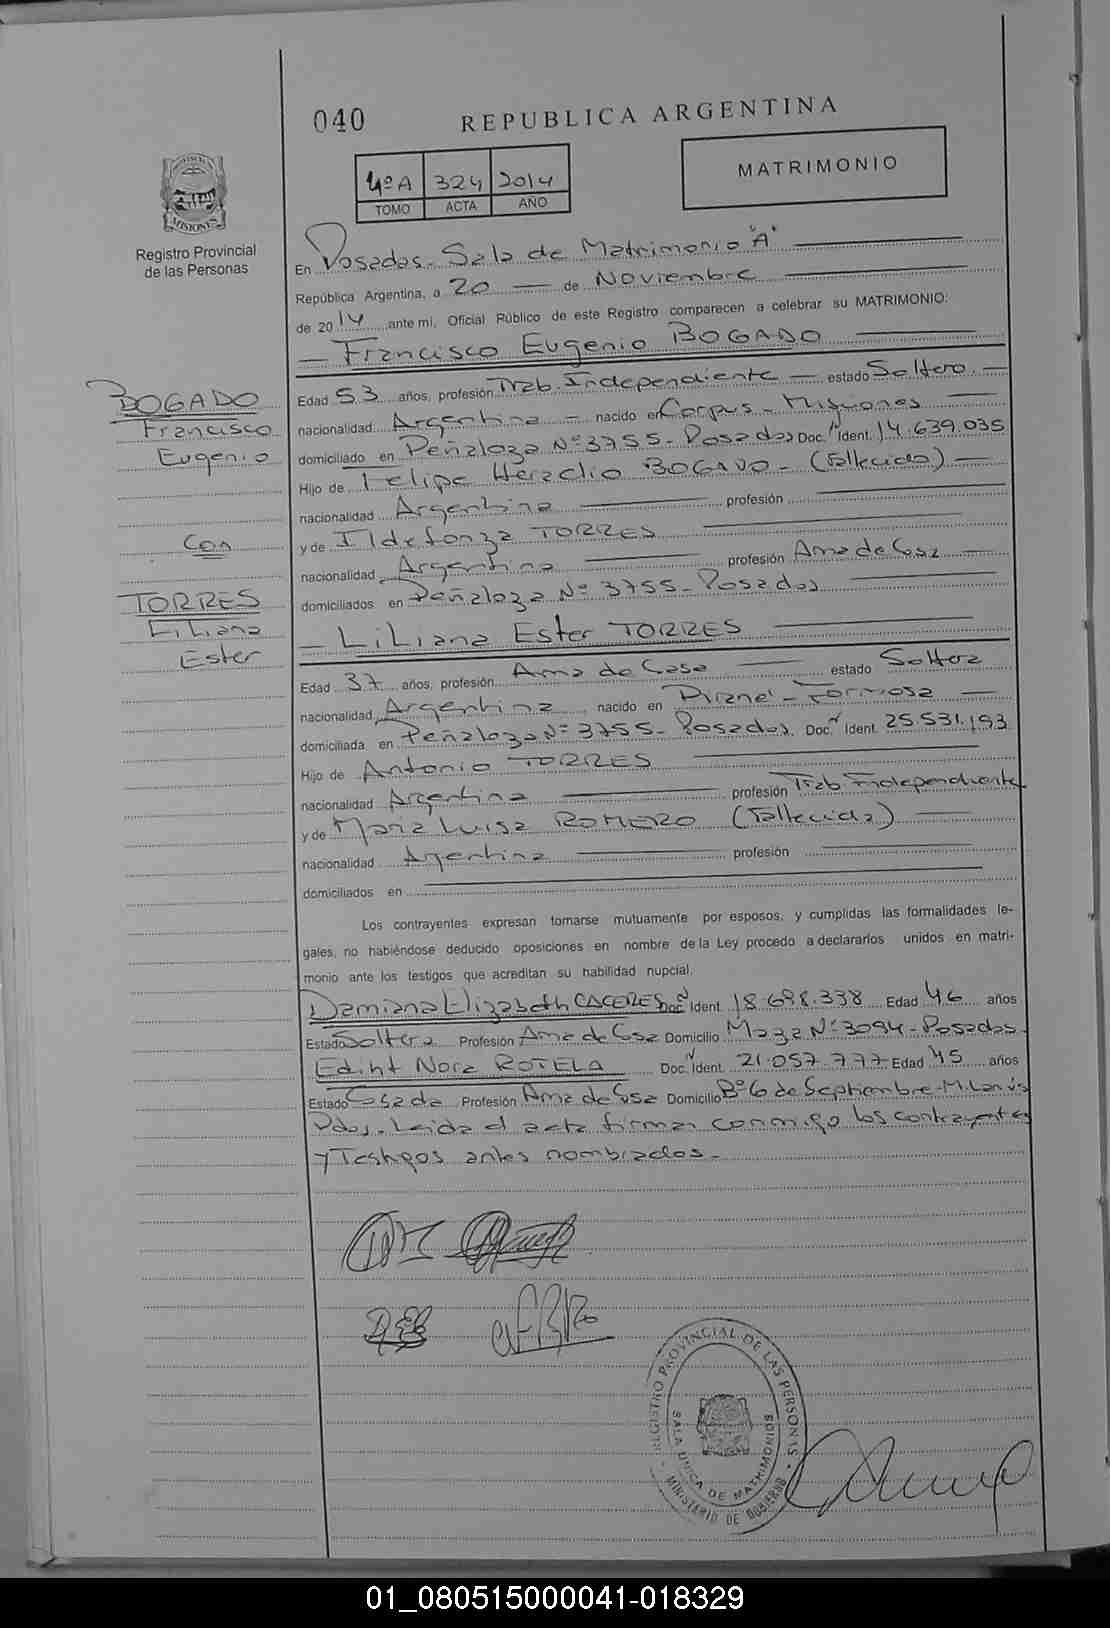 040
REPUBLICA ARGENTINA
4ºA 324 2014
TOMO ACTA AÑO
MATRIMONIO
MISIONES
Registro Provincial
de las Personas
En Posadas - Sala de Matrimonio "A"
República Argentina, a 20 de Noviembre
de 2014 ante mi, Oficial Público de este Registro comparecen a celebrar su MATRIMONIO:
Francisco Eugenio BOGADO
Edad 53 años, profesión Trab. Independiente estado Soltero
nacionalidad Argentina nacido en Corpus - Misiones
domiciliado en Peñaloza Nº 3755 - Posadas Doc. Ident. 14.639.035
Hijo de Felipe Heraclio BOGADO - (Fallecido)
nacionalidad Argentina profesión
y de Ildefonza TORRES
nacionalidad Argentina profesión Ama de Casa
domiciliados en Peñaloza Nº 3755 - Posadas
Liliana Ester TORRES
Edad 37 años, profesión Ama de Casa estado Soltera
nacionalidad Argentina nacido en Pirané - Formosa
domiciliada en Peñaloza Nº 3755 - Posadas. Doc. Ident. 25.531.193
Hijo de Antonio TORRES
nacionalidad Argentina profesión Trab. Independiente
y de Maria Luisa ROMERO (Fallecida)
nacionalidad Argentina profesión
domiciliados en
BOGADO
Francisco
Eugenio
Con
TORRES
Liliana
Ester
Los contrayentes expresan tomarse mutuamente por esposos, y cumplidas las formalidades le-
gales, no habiéndose deducido oposiciones en nombre de la Ley procedo a declararlos unidos en matri-
monio ante los testigos que acreditan su habilidad nupcial.
Damiana Elizabeth CACERES Doc. Ident. 18.698.338 Edad 46 años
Estado Soltera Profesión Ama de Casa Domicilio Maza Nº 3094 - Posadas
Ediht Nora ROTELA Doc. Ident. 21.057.777 Edad 45 años
Estado Casada Profesión Ama de Casa Domicilio Bº 6 de Septiembre - M. Lanús
Pdas. Leida el acta firman conmigo los contrayentes
y Testigos antes nombrados.
REGISTRO PROVINCIAL DE LAS PERSONAS
SALA UNICA DE MATRIMONIOS
MINISTERIO DE GOBIERNO
01_080515000041-018329